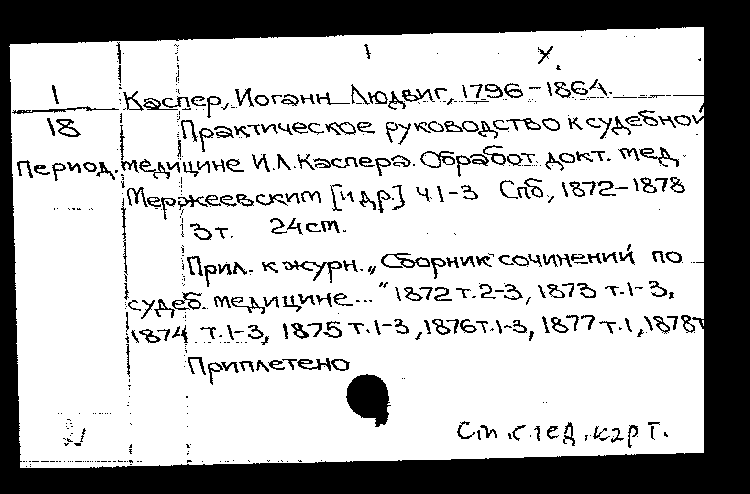 I У.
1 Каспер, Иоганн Людвиг, 1796-1864.
18 Практическое руководство к судебной
Период. медицине И.Л.Каспера. Обработ. докт. мед.
Мержеевским [и др.] ч.1-3 Спб, 1872-1878
3т. 24см.
Прил. к журн. „Сборник сочинений по
судеб. медицине..." 1872 т.2-3, 1873 т.1-3,
1874 т.1-3, 1875 т.1-3, 1876 т.1-3, 1877 т.1, 1878 т
Приплетено
См. след. карт.